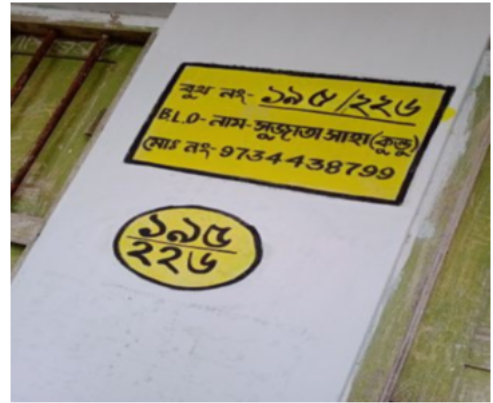 বুথ নং- ১৯৫/২২৬
B.L.O- নাম-সুজাতা সাহা(কুন্ডু)
মোঃ নং- 9734438799
১৯৫
২২৬